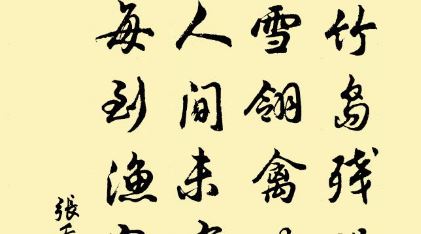 竹岛残
雪翎禽
人间未
每到渔
張